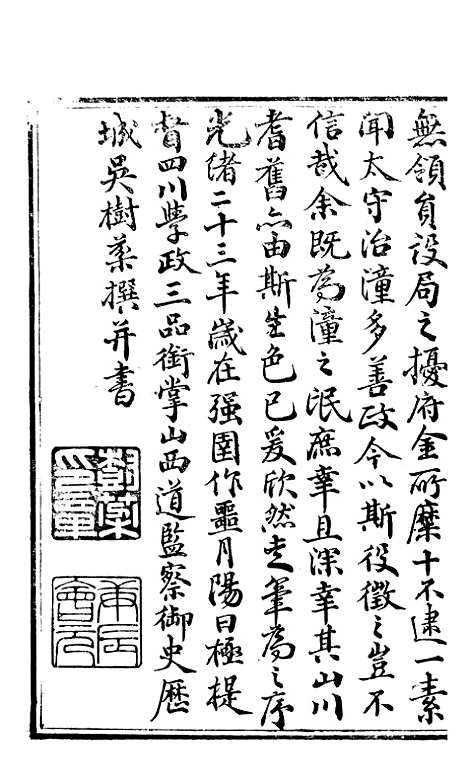 無領負設局之擾府金所糜十不逮一素
聞太守治潼多善政今以斯役徵之豈不
信哉余既為潼之氓庶幸且深幸其山川
耆舊亦由斯生色已爰欣然走筆為之序
光緒二十三年歲在强圉作噩月陽曰極提
督四川學政三品銜掌山西道監察御史歷
城吳樹棻撰并書
樹棻
印章
丙辰
會元